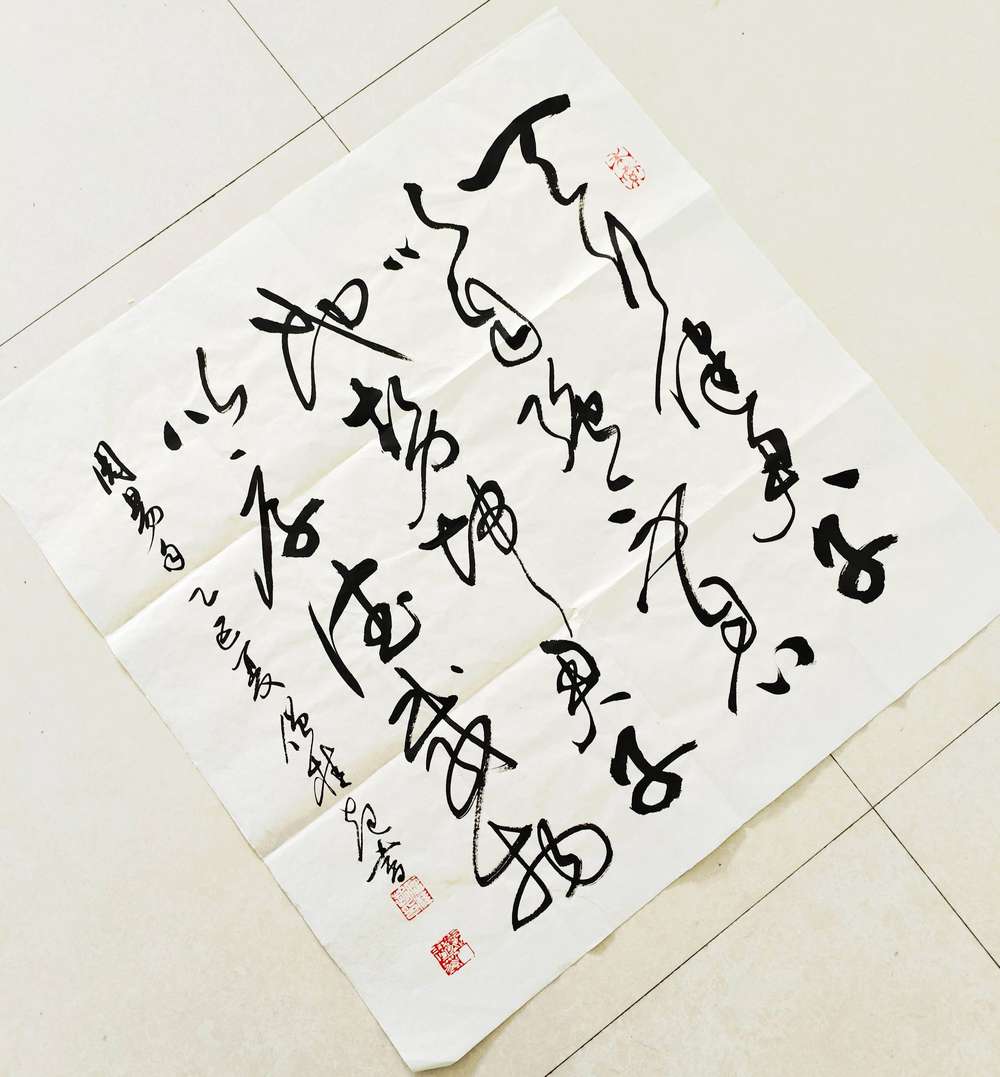 天行健君子
以自强不息
地势坤君子
以厚德载物
周易句 乙巳夏